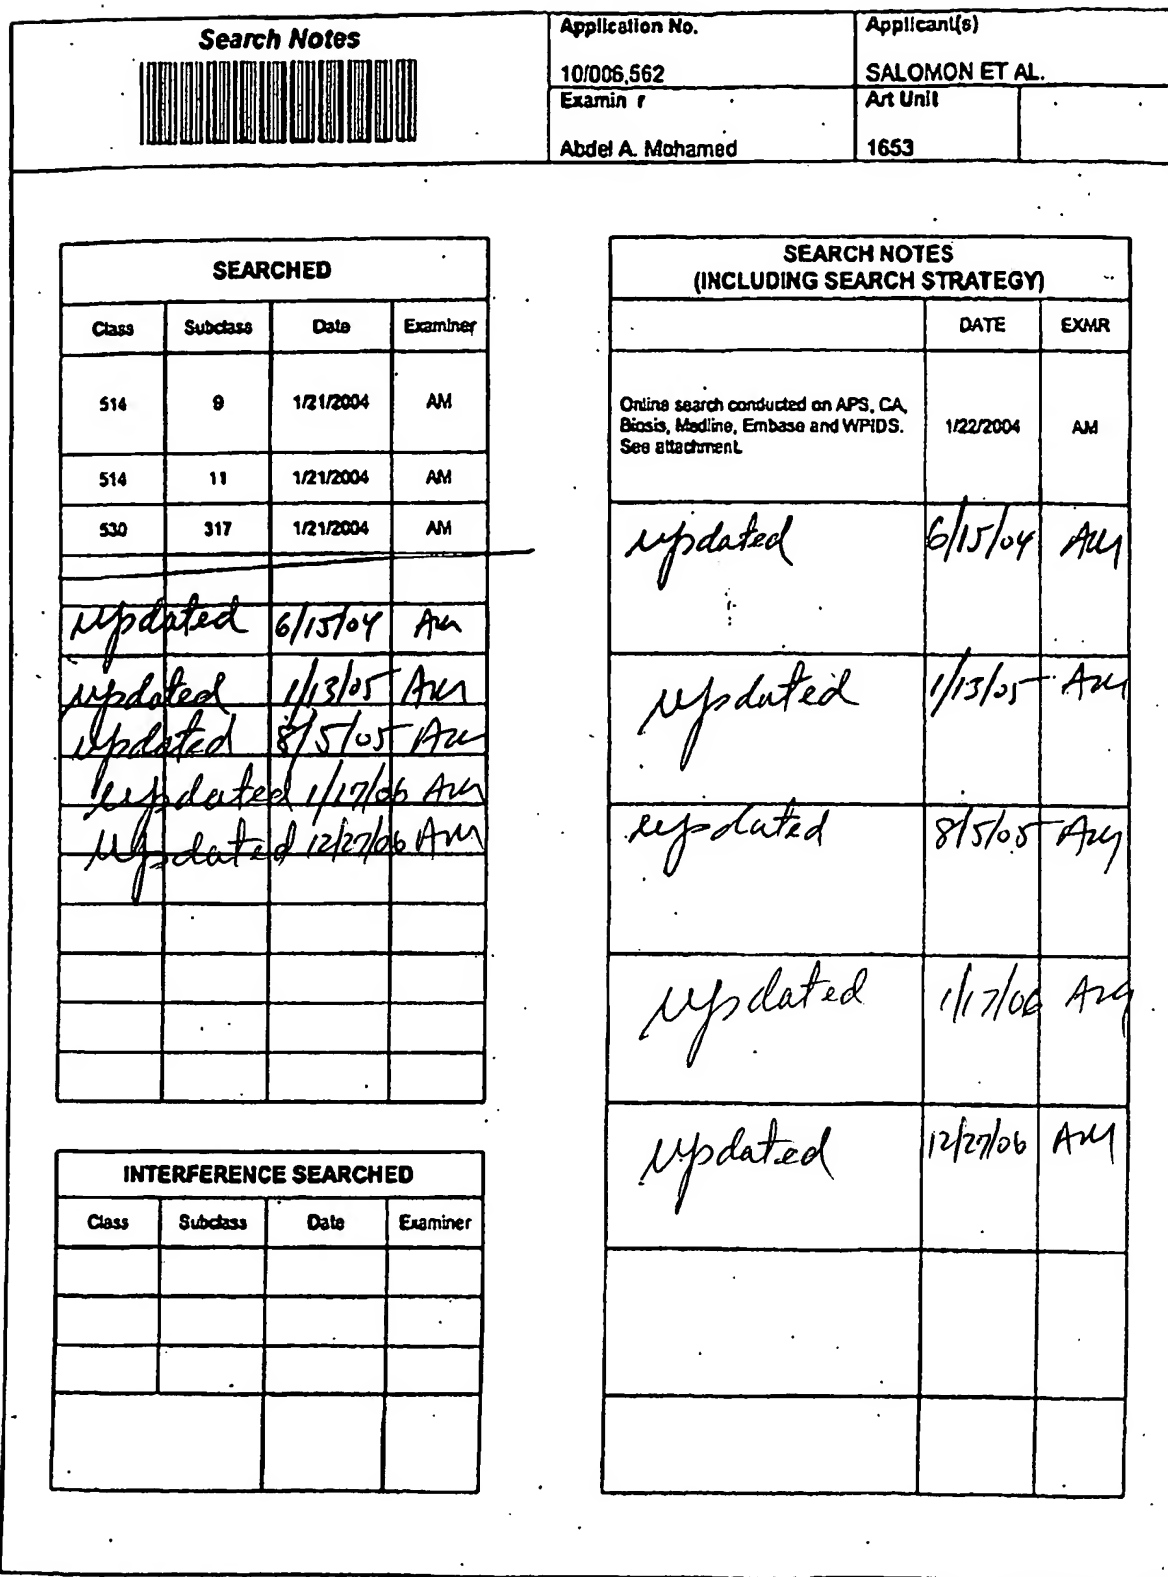 Search Notes
Application No.
10/006,562
Applicant(s)
SALOMON ET AL.
Examin r
Abdel A. Mohamed
Art Unit
1653
SEARCHED
Class Subclass Date Examiner
514 9 1/21/2004 AM
514 11 1/21/2004 AM
530 317 1/21/2004 AM
updated 6/15/04 AM
updated 1/13/05 AM
updated 8/5/05 AM
updated 1/17/06 AM
updated 12/27/06 AM
INTERFERENCE SEARCHED
Class Subclass Date Examiner
SEARCH NOTES
(INCLUDING SEARCH STRATEGY)
DATE EXMR
Online search conducted on APS, CA,
Biosis, Medline, Embase and WPIDS.
See attachment.
1/22/2004 AM
updated 6/15/04 AM
updated 1/13/05 AM
updated 8/5/05 AM
updated 1/17/06 AM
updated 12/27/06 AM